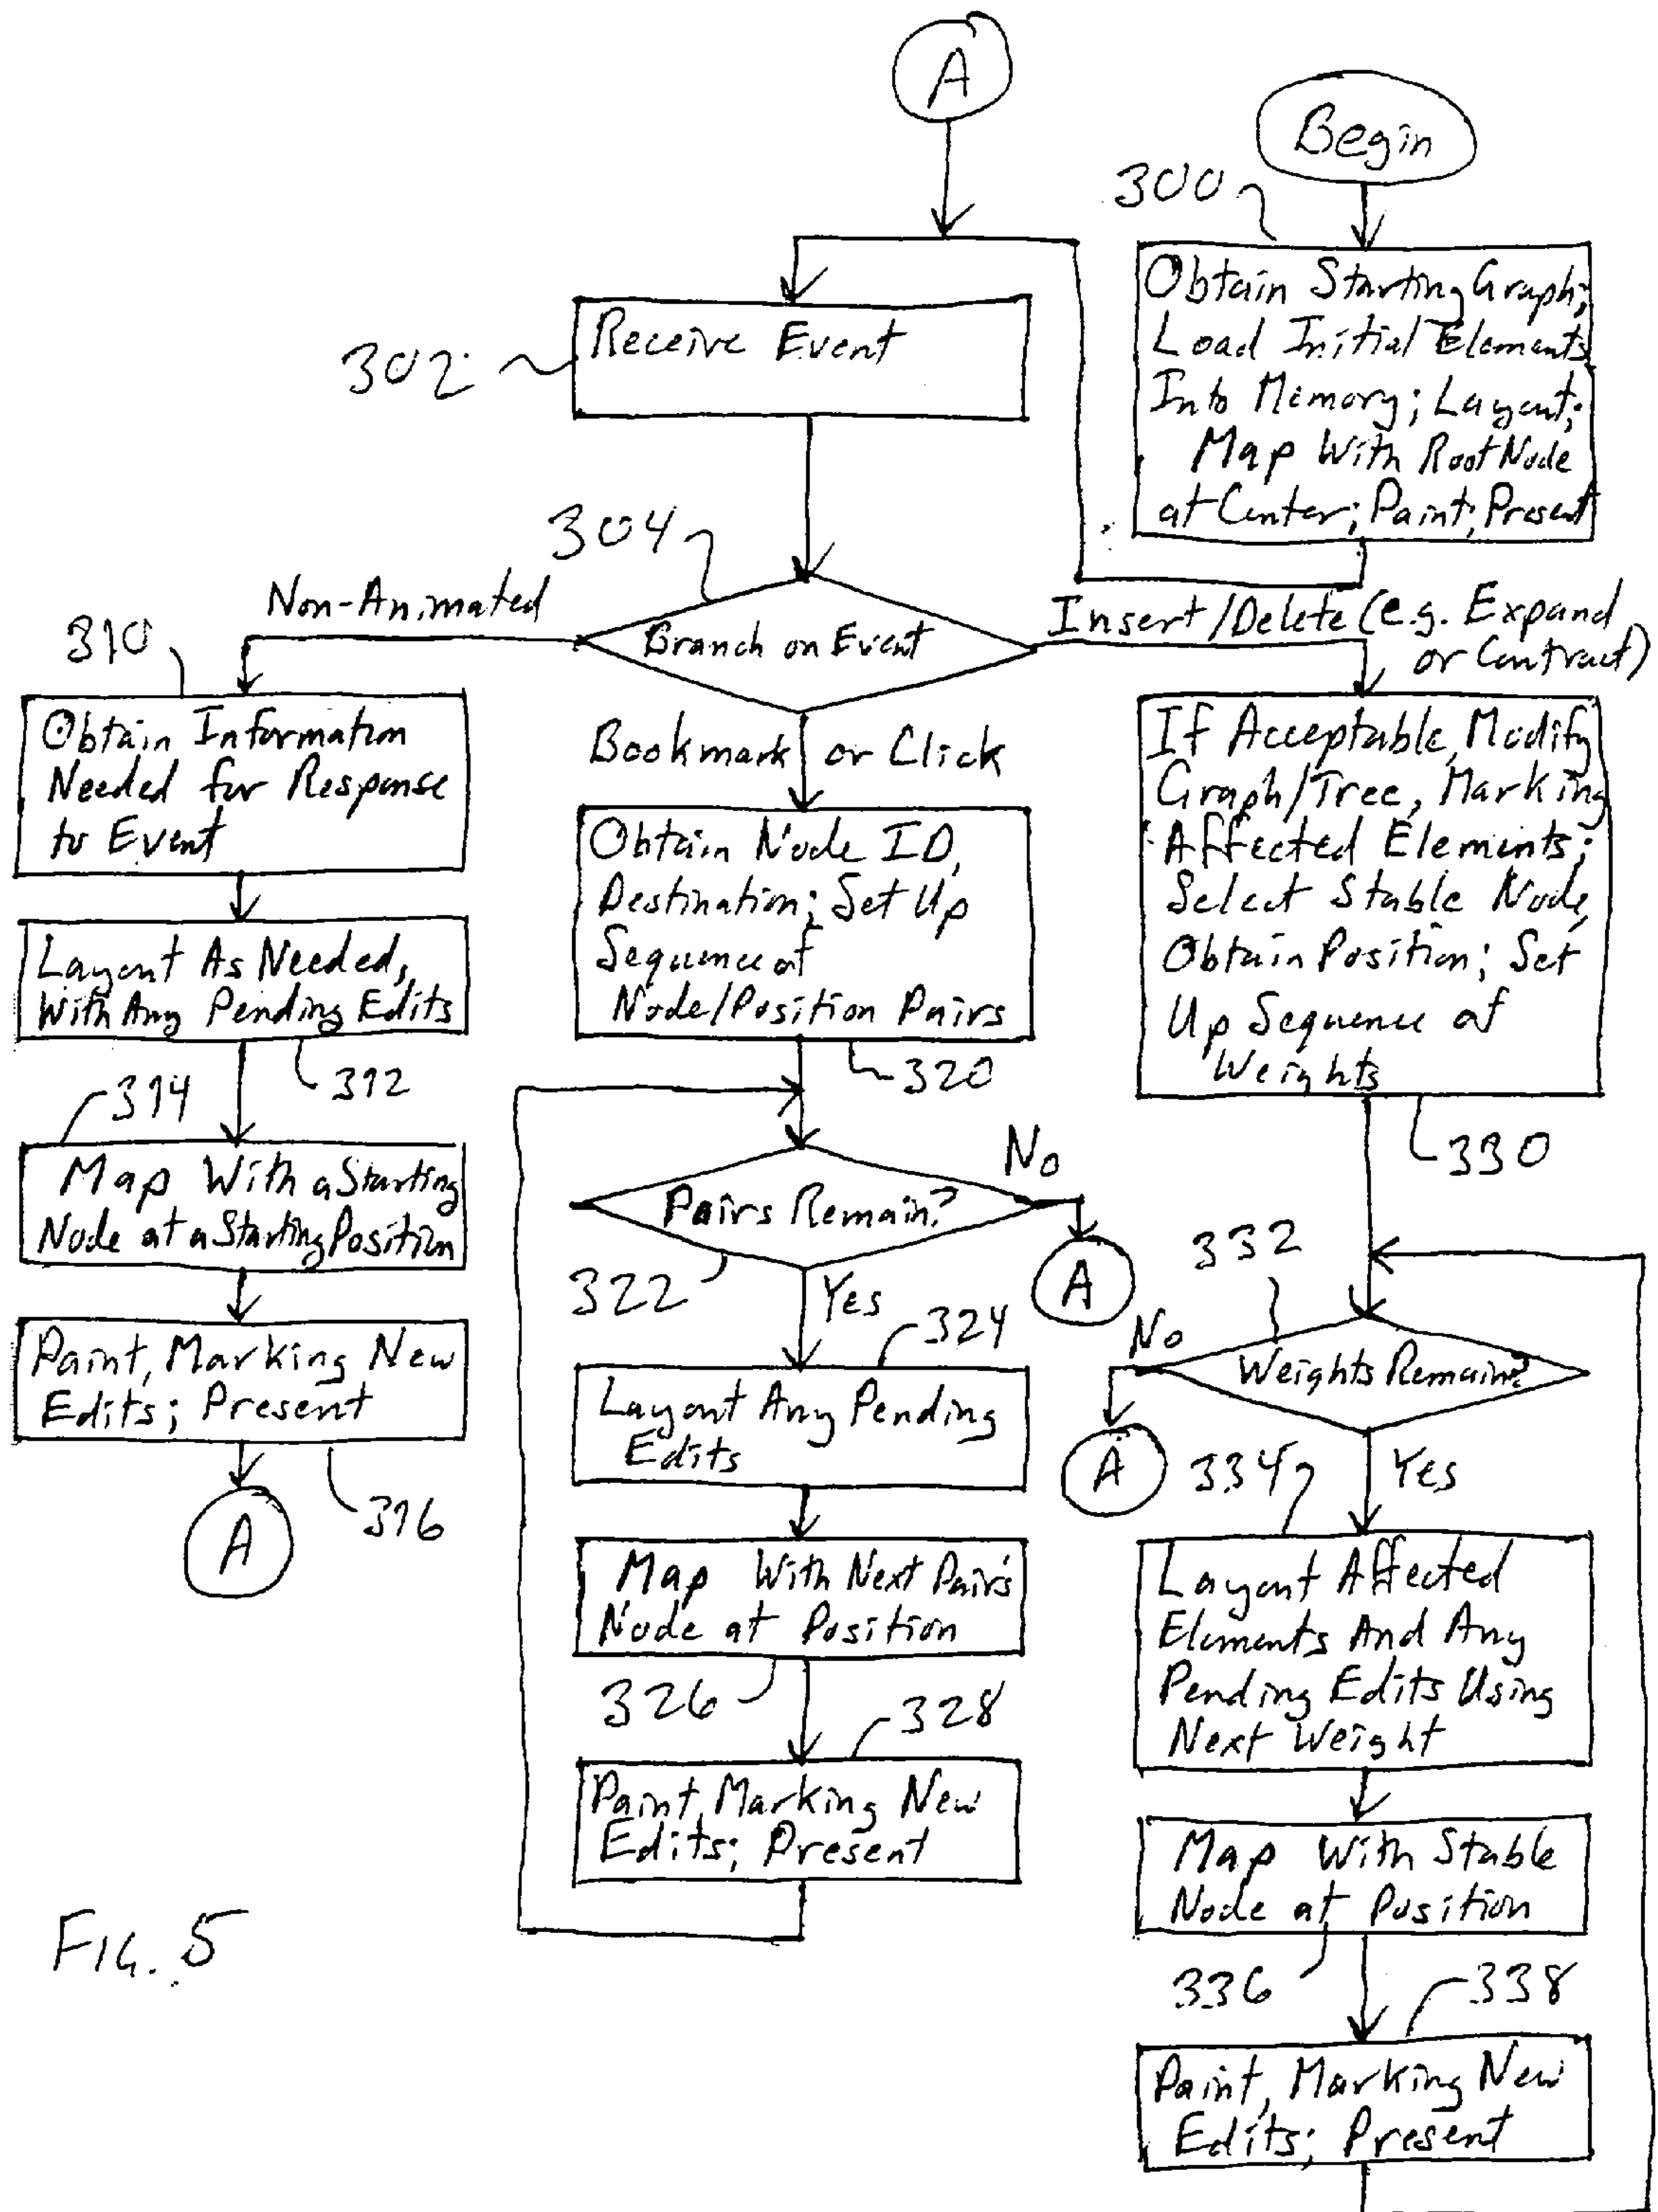 A
Begin
300
Obtain Starting Graph;
Load Initial Elements
Into Memory; Layout;
Map With Root Node
at Center; Paint; Present
302
Receive Event
304
Branch on Event
Non-Animated
310
Obtain Information
Needed for Response
to Event
Layout As Needed,
With Any Pending Edits
312
314
Map With a Starting
Node at a Starting Position
Paint, Marking New
Edits; Present
316
A
Bookmark or Click
Obtain Node ID,
Destination; Set Up
Sequence of
Node/Position Pairs
320
Pairs Remain?
322
No
A
Yes
324
Layout Any Pending
Edits
Map With Next Pair's
Node at Position
326
328
Paint, Marking New
Edits; Present
Insert/Delete (e.g. Expand
or Contract)
If Acceptable, Modify
Graph/Tree, Marking
Affected Elements;
Select Stable Node,
Obtain Position; Set
Up Sequence of
Weights
330
332
Weights Remain?
No
A
Yes
334
Layout Affected
Elements And Any
Pending Edits Using
Next Weight
Map With Stable
Node at Position
336
338
Paint, Marking New
Edits; Present
FIG. 5